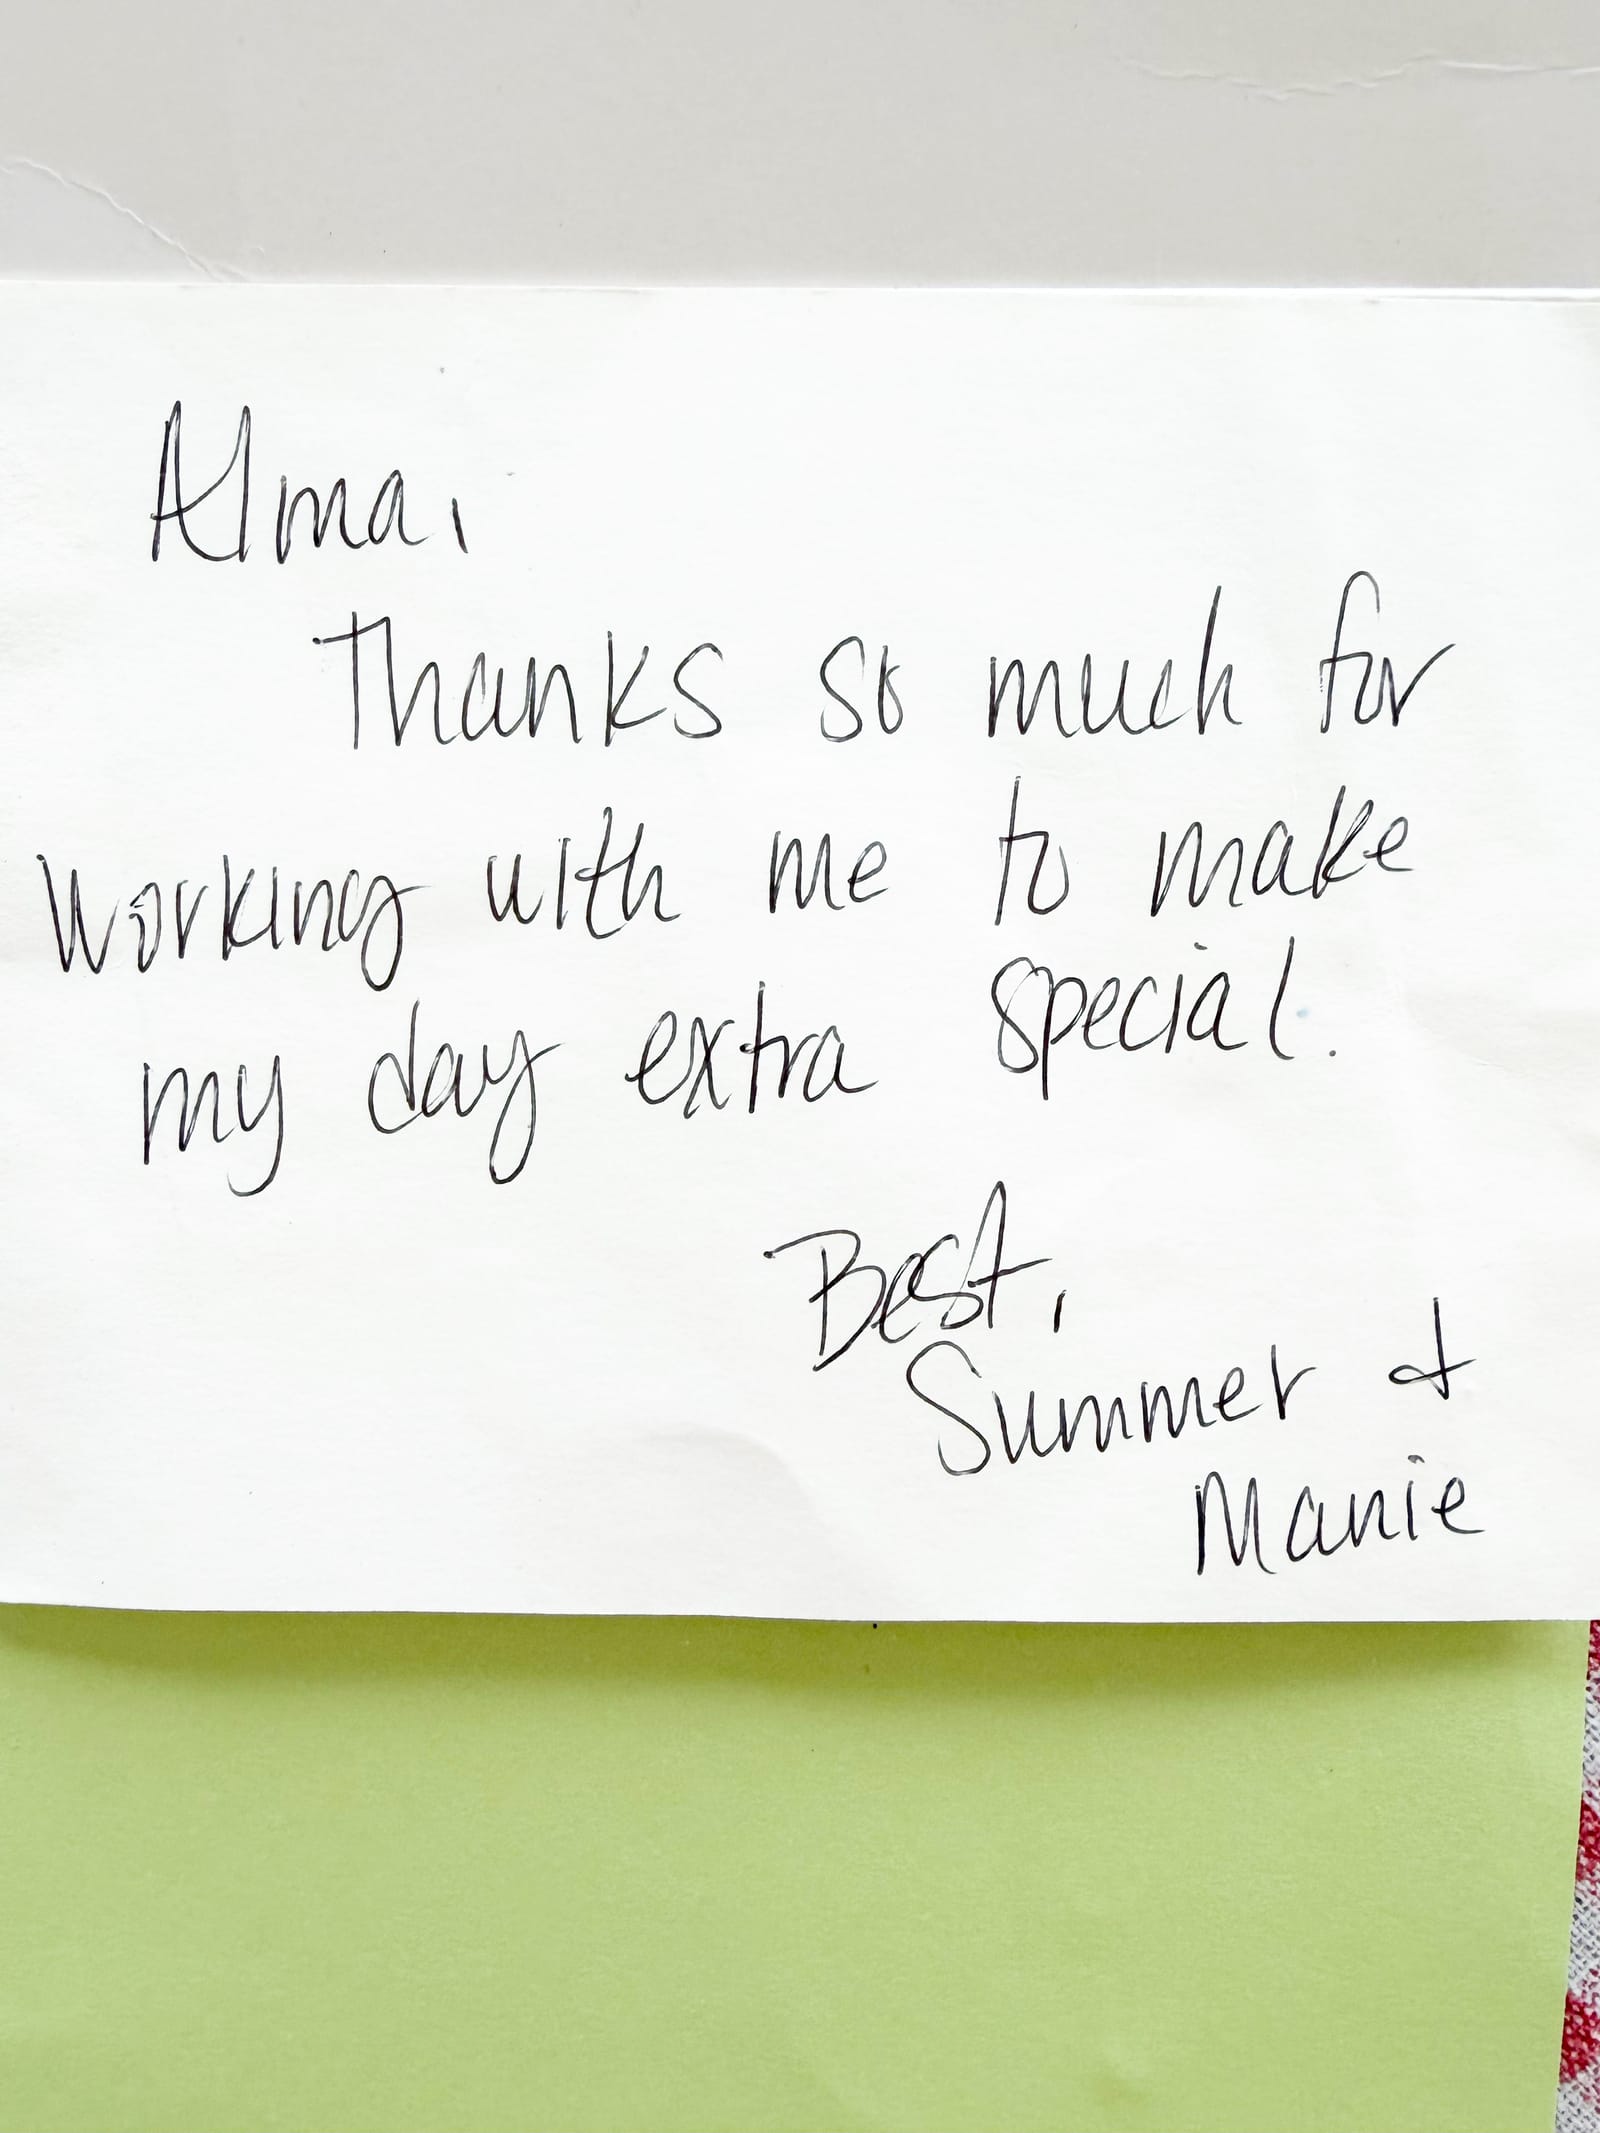 Alma,
Thanks so much for
working with me to make
my day extra special.
Best,
Summer &
Manie